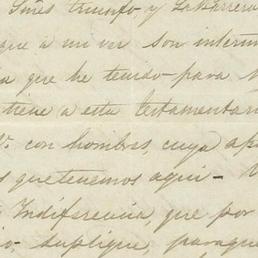 Sres triunfo, y LaBarrera
que à mi ver son interm
a que he tenido para
tiene a esta testamentari
con hombres, cuya apa
s que tenemos aqui –
Indiferencia, que por
suplique, paraque